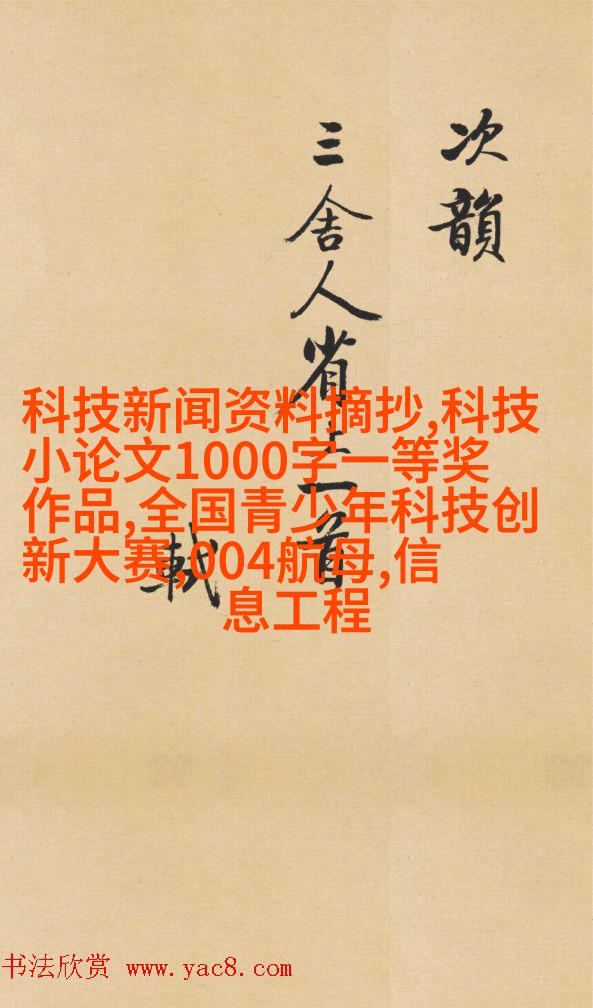 次韻
三舍人省上一首
軾
科技新闻资料摘抄,科技
小论文1000字一等奖
作品,全国青少年科技创
新大赛,004航母,信
息工程
书法欣赏 www.yac8.com